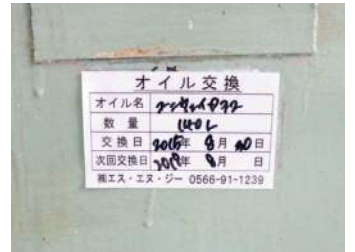 オイル交換
オイル名
数量 140L
交換日 2015年 8月 20日
次回交換日 2019年 8月 日
㈱エス・エヌ・ジー 0566-91-1239